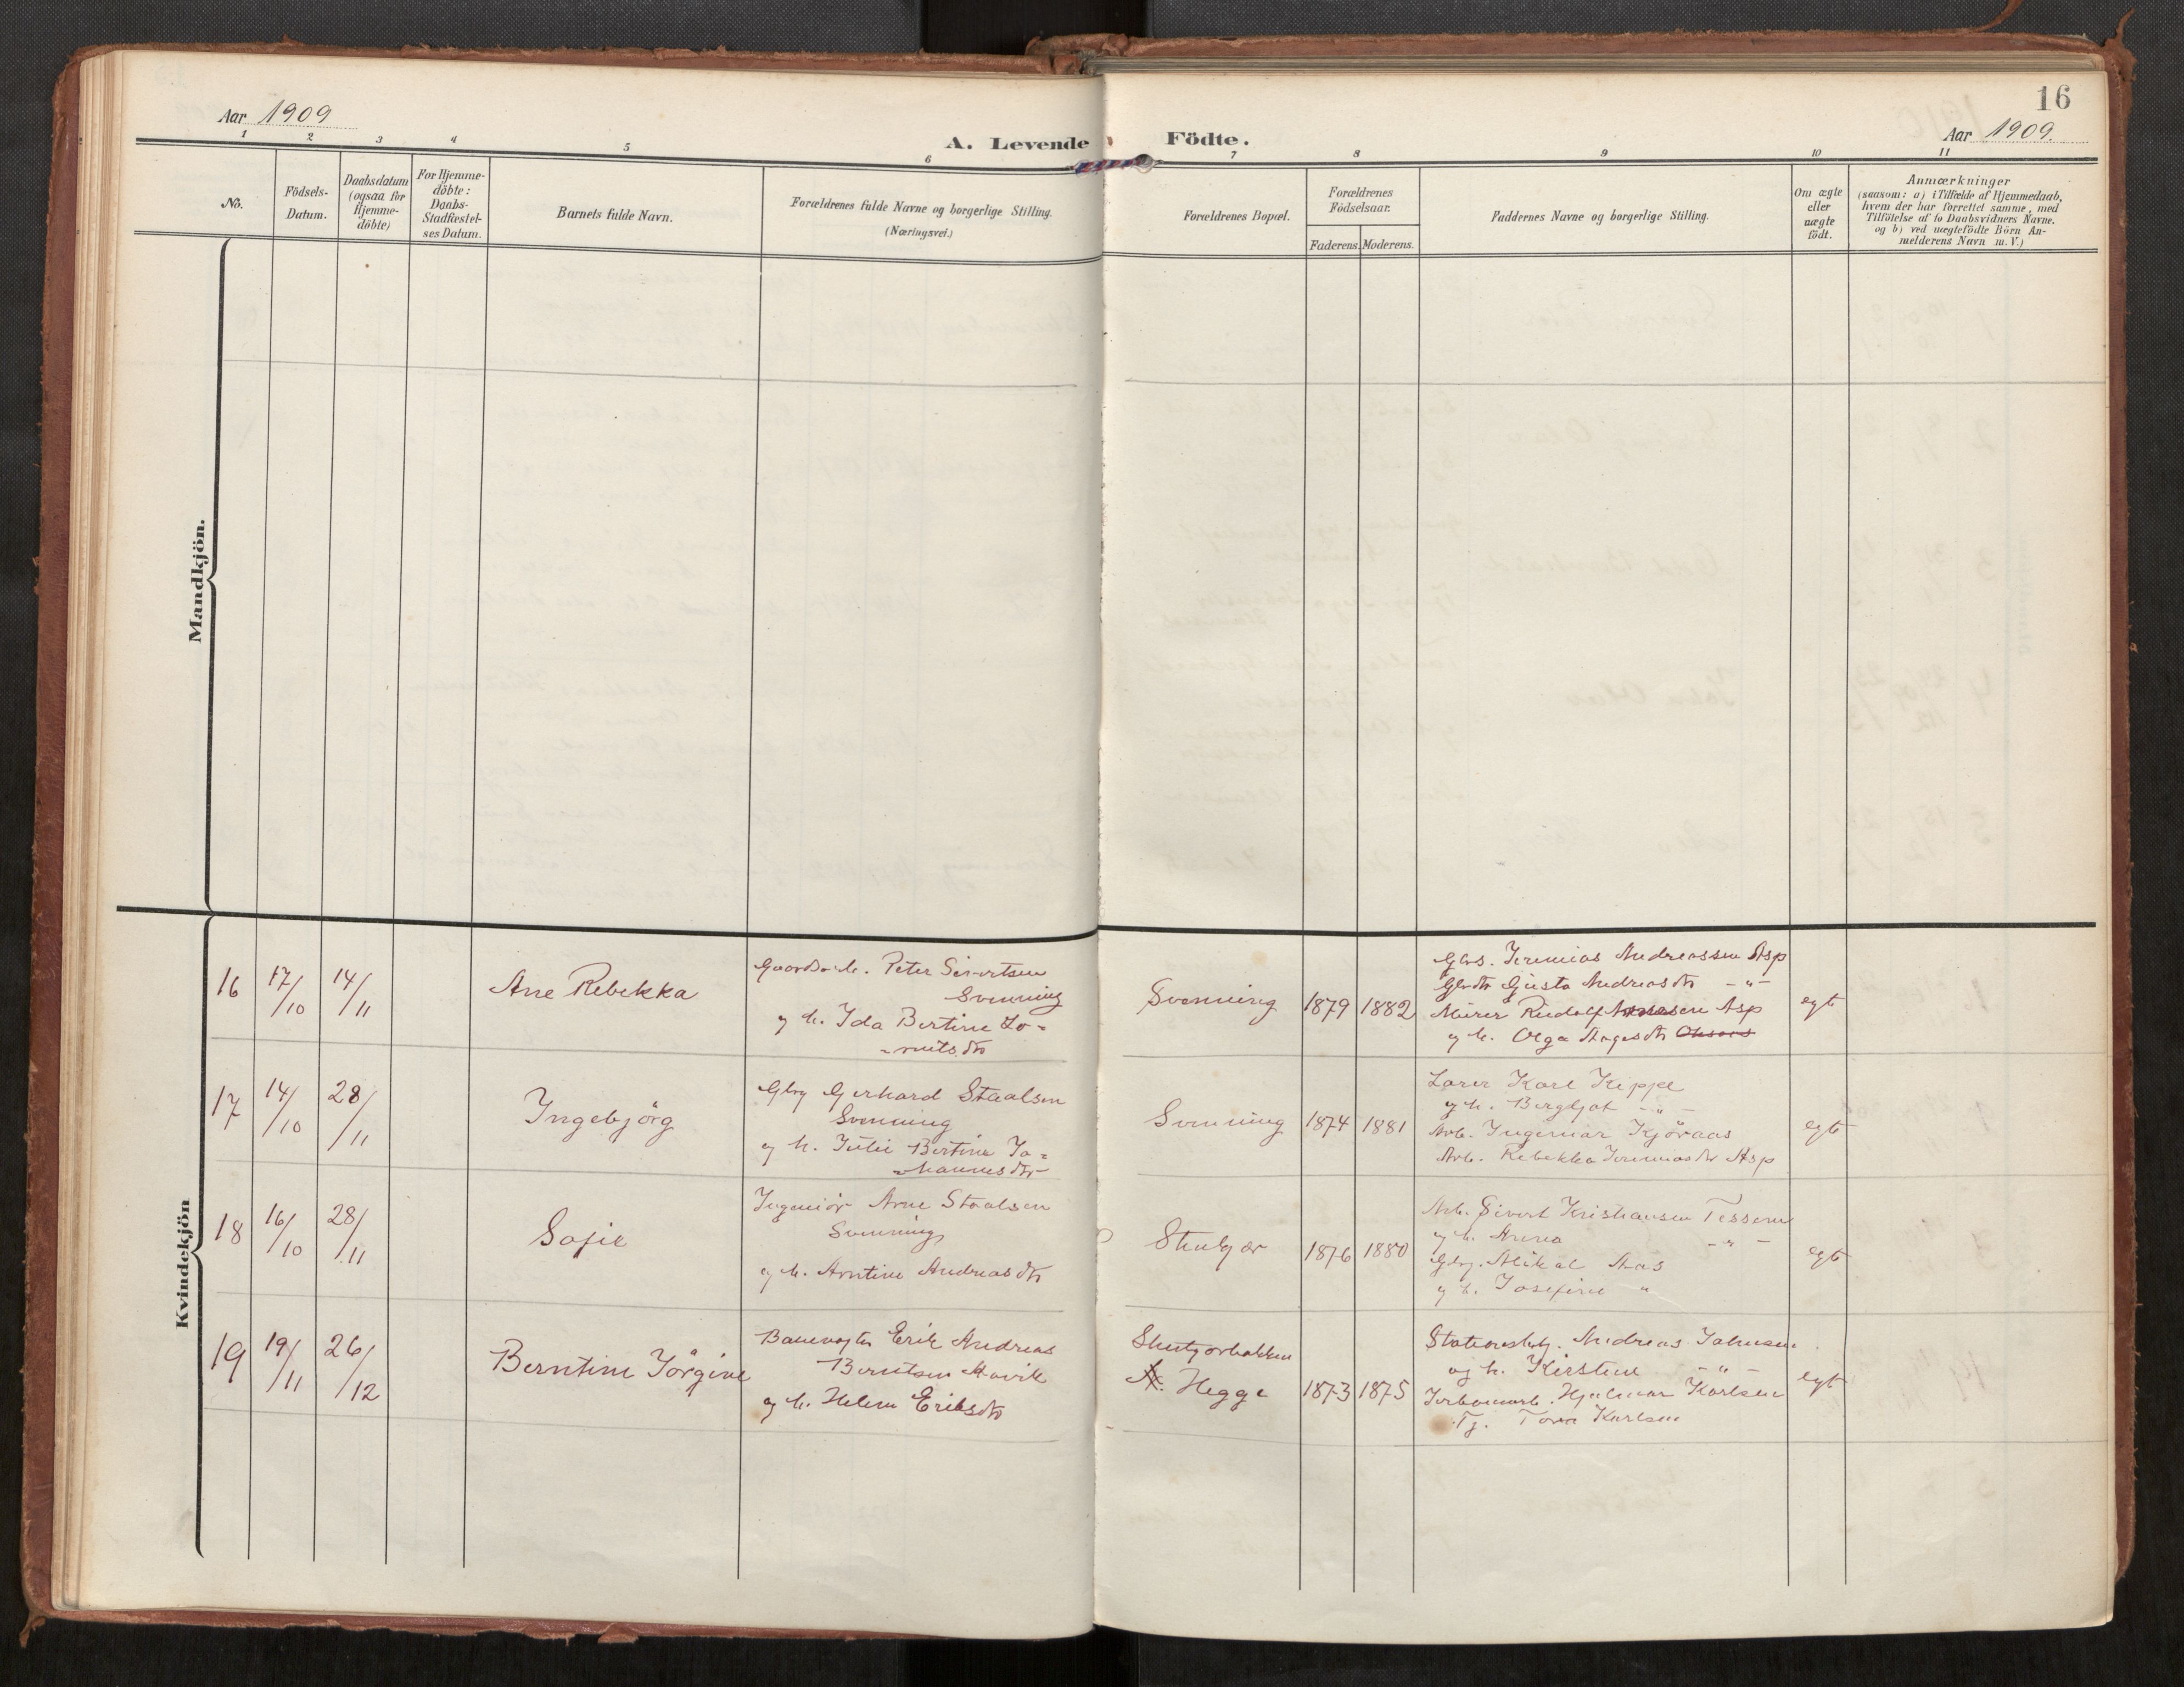 16
Aar 1909
Aar 1909.
A. Levende Födte.
1 2 3 4 5 6 7 8 9 10 11
No.
Födsels-
Datum.
Daabsdatum
(ogsaa for
Hjemme-
döbte)
For Hjemme-
döbte:
Daabs-
Stadfæstel-
ses Datum.
Barnets fulde Navn.
Forældrenes fulde Navne og borgerlige Stilling.
(Næringsvei.)
Forældrenes Bopæl.
Forældrenes
Födselsaar.
Faderens. Moderens.
Faddernes Navne og borgerlige Stilling.
Om ægte
eller
uægte
födt.
Anmærkninger
(saasom: a) i Tilfælde af Hjemmedaab,
hvem der har forrettet samme, med
Tilföielse af to Daabsvidners Navne.
og b) ved uægtefödte Börn An-
melderens Navn m. V.)
Mandkjön.
Kvindekjön
16 17/10 14/11 Ane Rebekka
Peter Sivertsen
Svenning
og h. Ida Bertine Lo-
Svenning 1879 1882
Gbs. Jeremias Andreassen Asp
Gusta Andreasdtr -"-
Murer Rudolf Asp
og h. Olga
egt
17 14/10 28/11 Ingebjörg
Gbrg Gerhard Staalsen
Svenning
og h. Julie Bertine Jo-
-hannesdtr
Svenning 1874 1881
Lærer Karl Kippe
og h. Bergljot -"-
Arb. Ingemar Kjöraas
Arb. Rebekka Jeremiasdtr Asp
egt
18 16/10 28/11 Sofie
Ingeniör Arne Staalsen
Svenning
og h. Arntine Andreasdtr
1876 1880
Arb. Sivert Kristiansen Tessem
og h. Anna -"-
Gbrg. Mikal Aas
og h. Josefine "
egt
19 19/11 26/12 Berntine Jörgine
Banevogter Erik Andreas
Berntsen Havik
og h. Helene Eriksdtr
Hegge 1873 1875
Andreas Johnsen
og h. Kirstine -"-
Hjalmar Karlsen
Tj. Tora Karlsen
egt